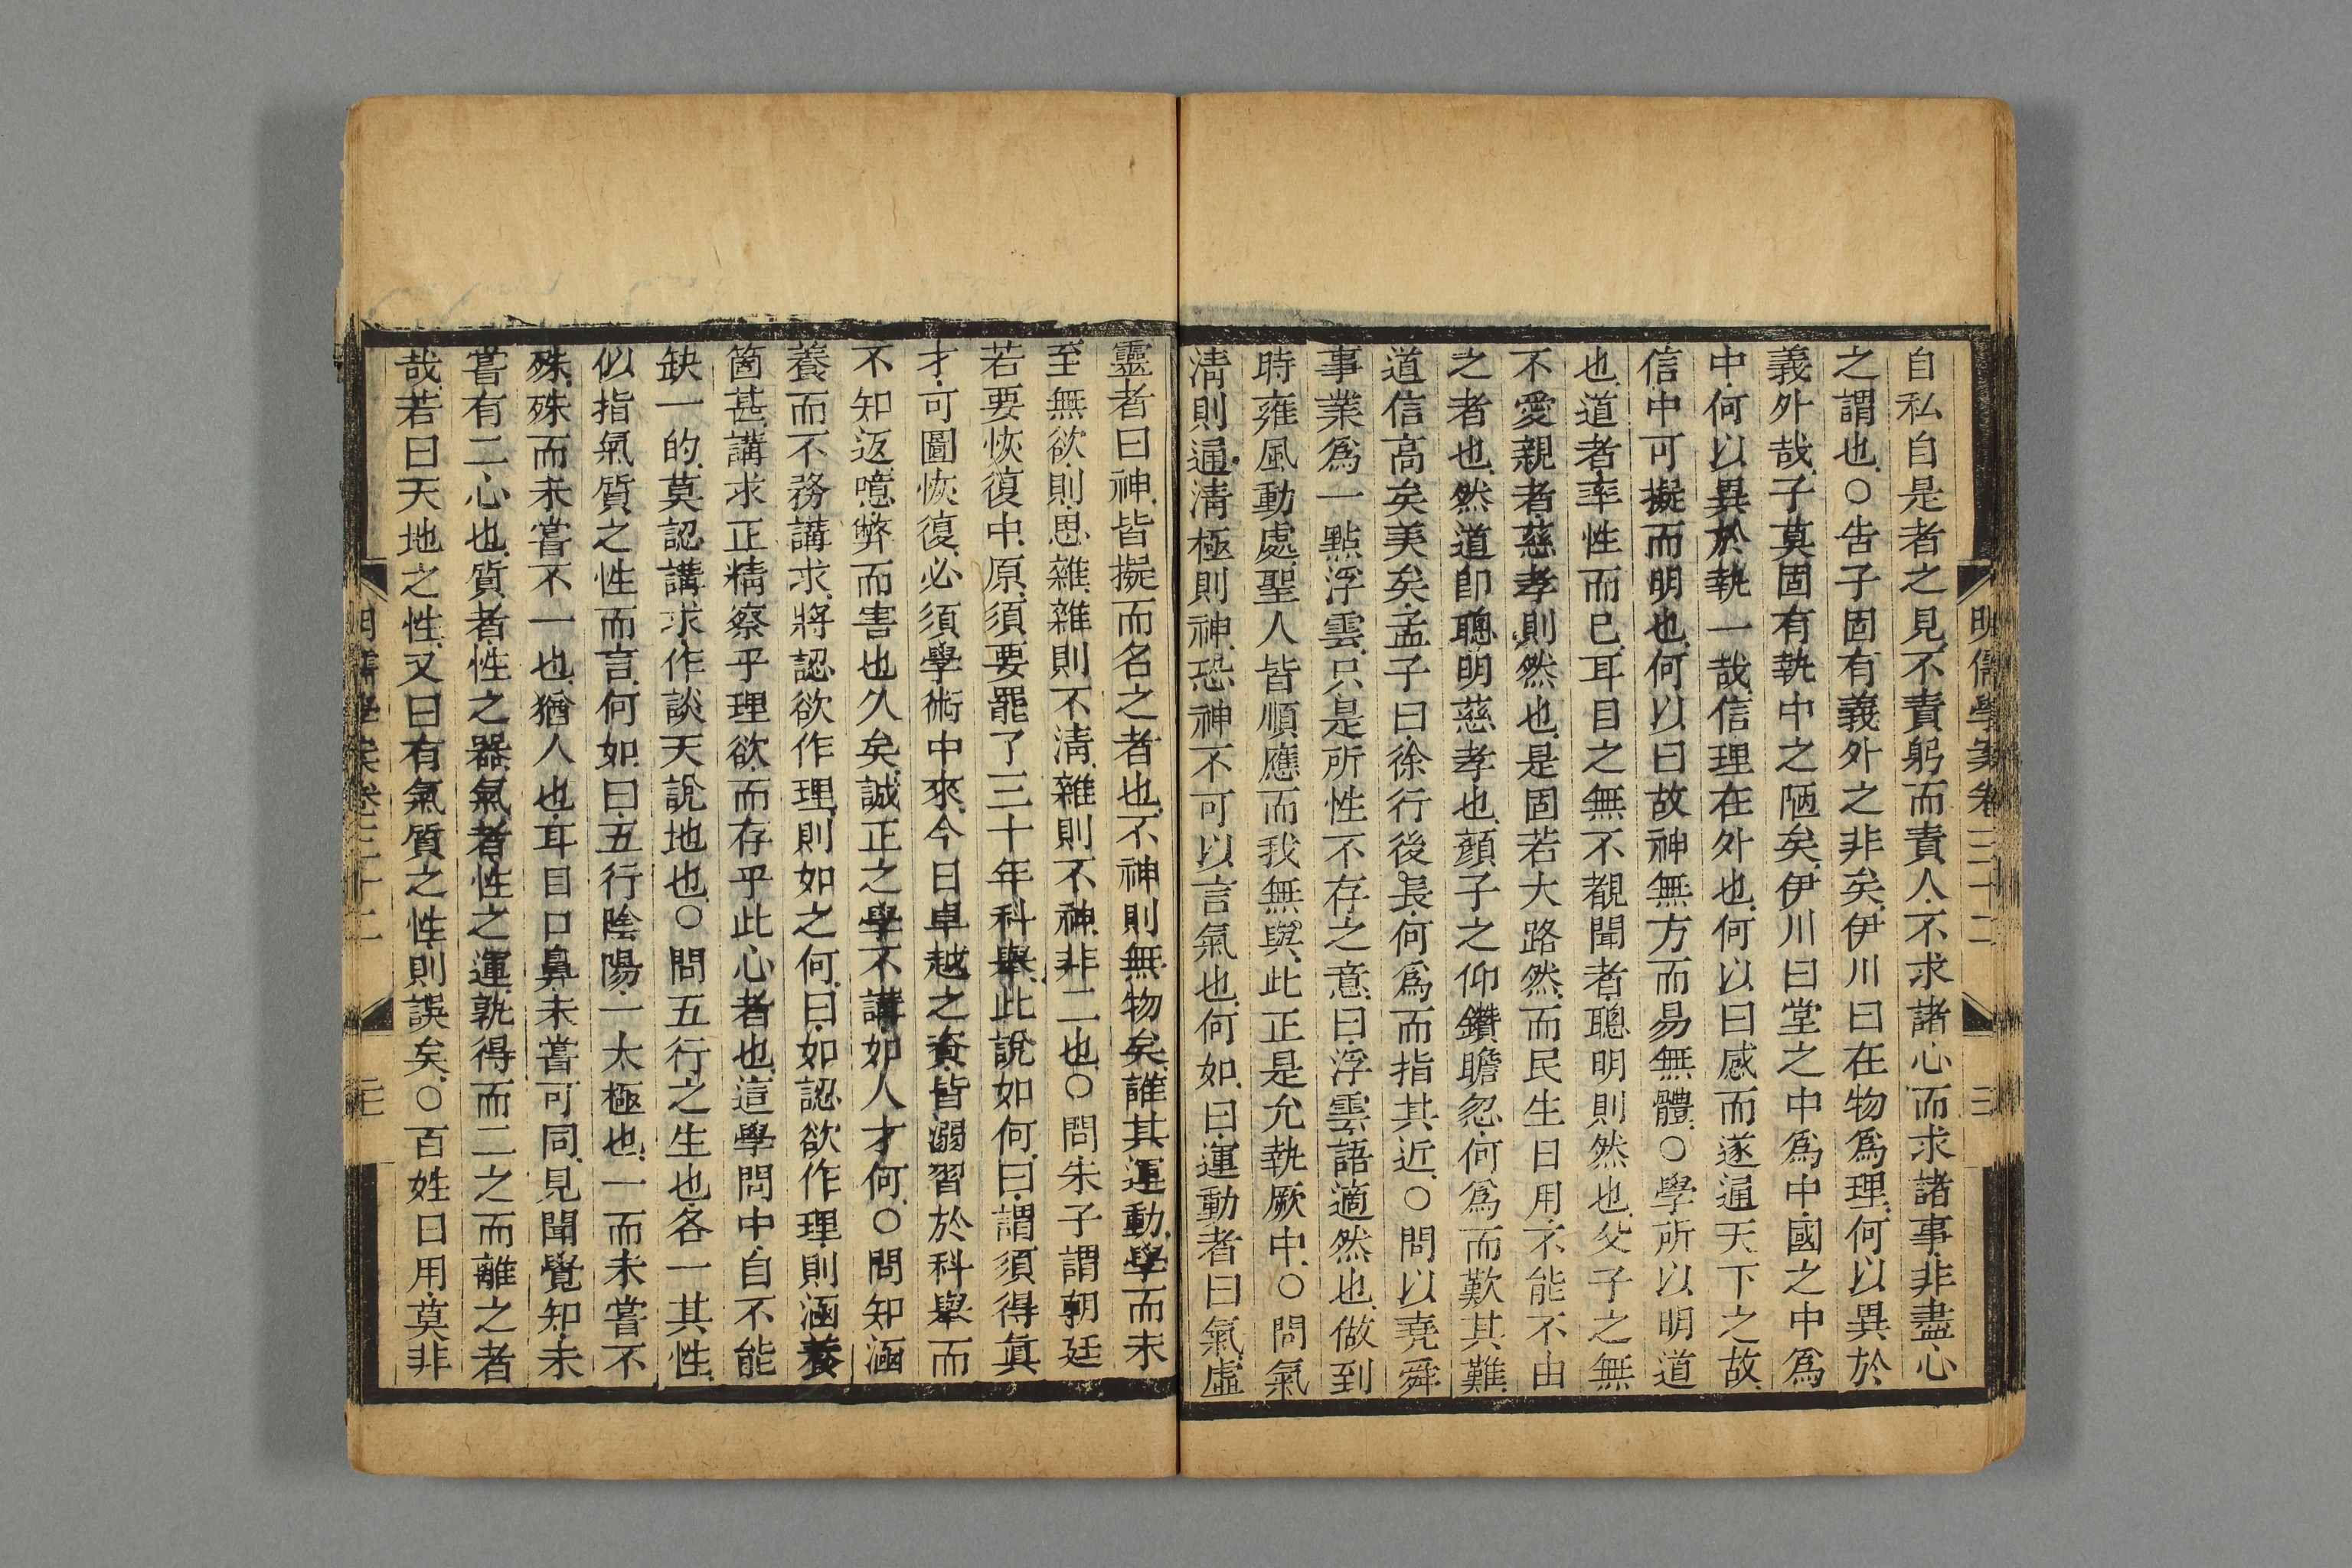 明儒學案卷三十二
三
自私自是者之見不責躬而責人不求諸心而求諸事非盡心
之謂也○告子固有義外之非矣伊川曰在物爲理何以異於
義外哉子莫固有執中之陋矣伊川曰堂之中爲中國之中爲
中何以異於執一哉信理在外也何以曰感而遂通天下之故
信中可擬而明也何以曰故神無方而易無體○學所以明道
也道者率性而已耳目之無不覩聞者聰明則然也父子之無
不愛親者慈孝則然也是固若大路然而民生日用不能不由
之者也然道卽聰明慈孝也顏子之仰鑽瞻忽何爲而歎其難
道信高矣美矣孟子曰徐行後長何爲而指其近○問以堯舜
事業爲一點浮雲只是所性不存之意曰浮雲語適然也做到
時雍風動處聖人皆順應而我無與此正是允執厥中○問氣
淸則通淸極則神恐神不可以言氣也何如曰運動者曰氣虛
靈者曰神皆擬而名之者也不神則無物矣誰其運動學而未
至無欲則思雜雜則不淸雜則不神非二也○問朱子謂朝廷
若要恢復中原須要罷了三十年科舉此說如何曰謂須得眞
才可圖恢復必須學術中來今日卓越之資皆溺習於科舉而
不知返噫弊而害也久矣誠正之學不講如人才何○問知涵
養而不務講求將認欲作理則如之何曰如認欲作理則涵養
箇甚講求正精察乎理欲而存乎此心者也這學問中自不能
缺一的莫認講求作談天說地也○問五行之生也各一其性
似指氣質之性而言何如曰五行陰陽一太極也一而未嘗不
殊殊而未嘗不一也猶人也耳目口鼻未嘗可同見聞覺知未
嘗有二心也質者性之器氣者性之運孰得而二之而離之者
哉若曰天地之性又曰有氣質之性則誤矣○百姓日用莫非
明儒學案卷三十二